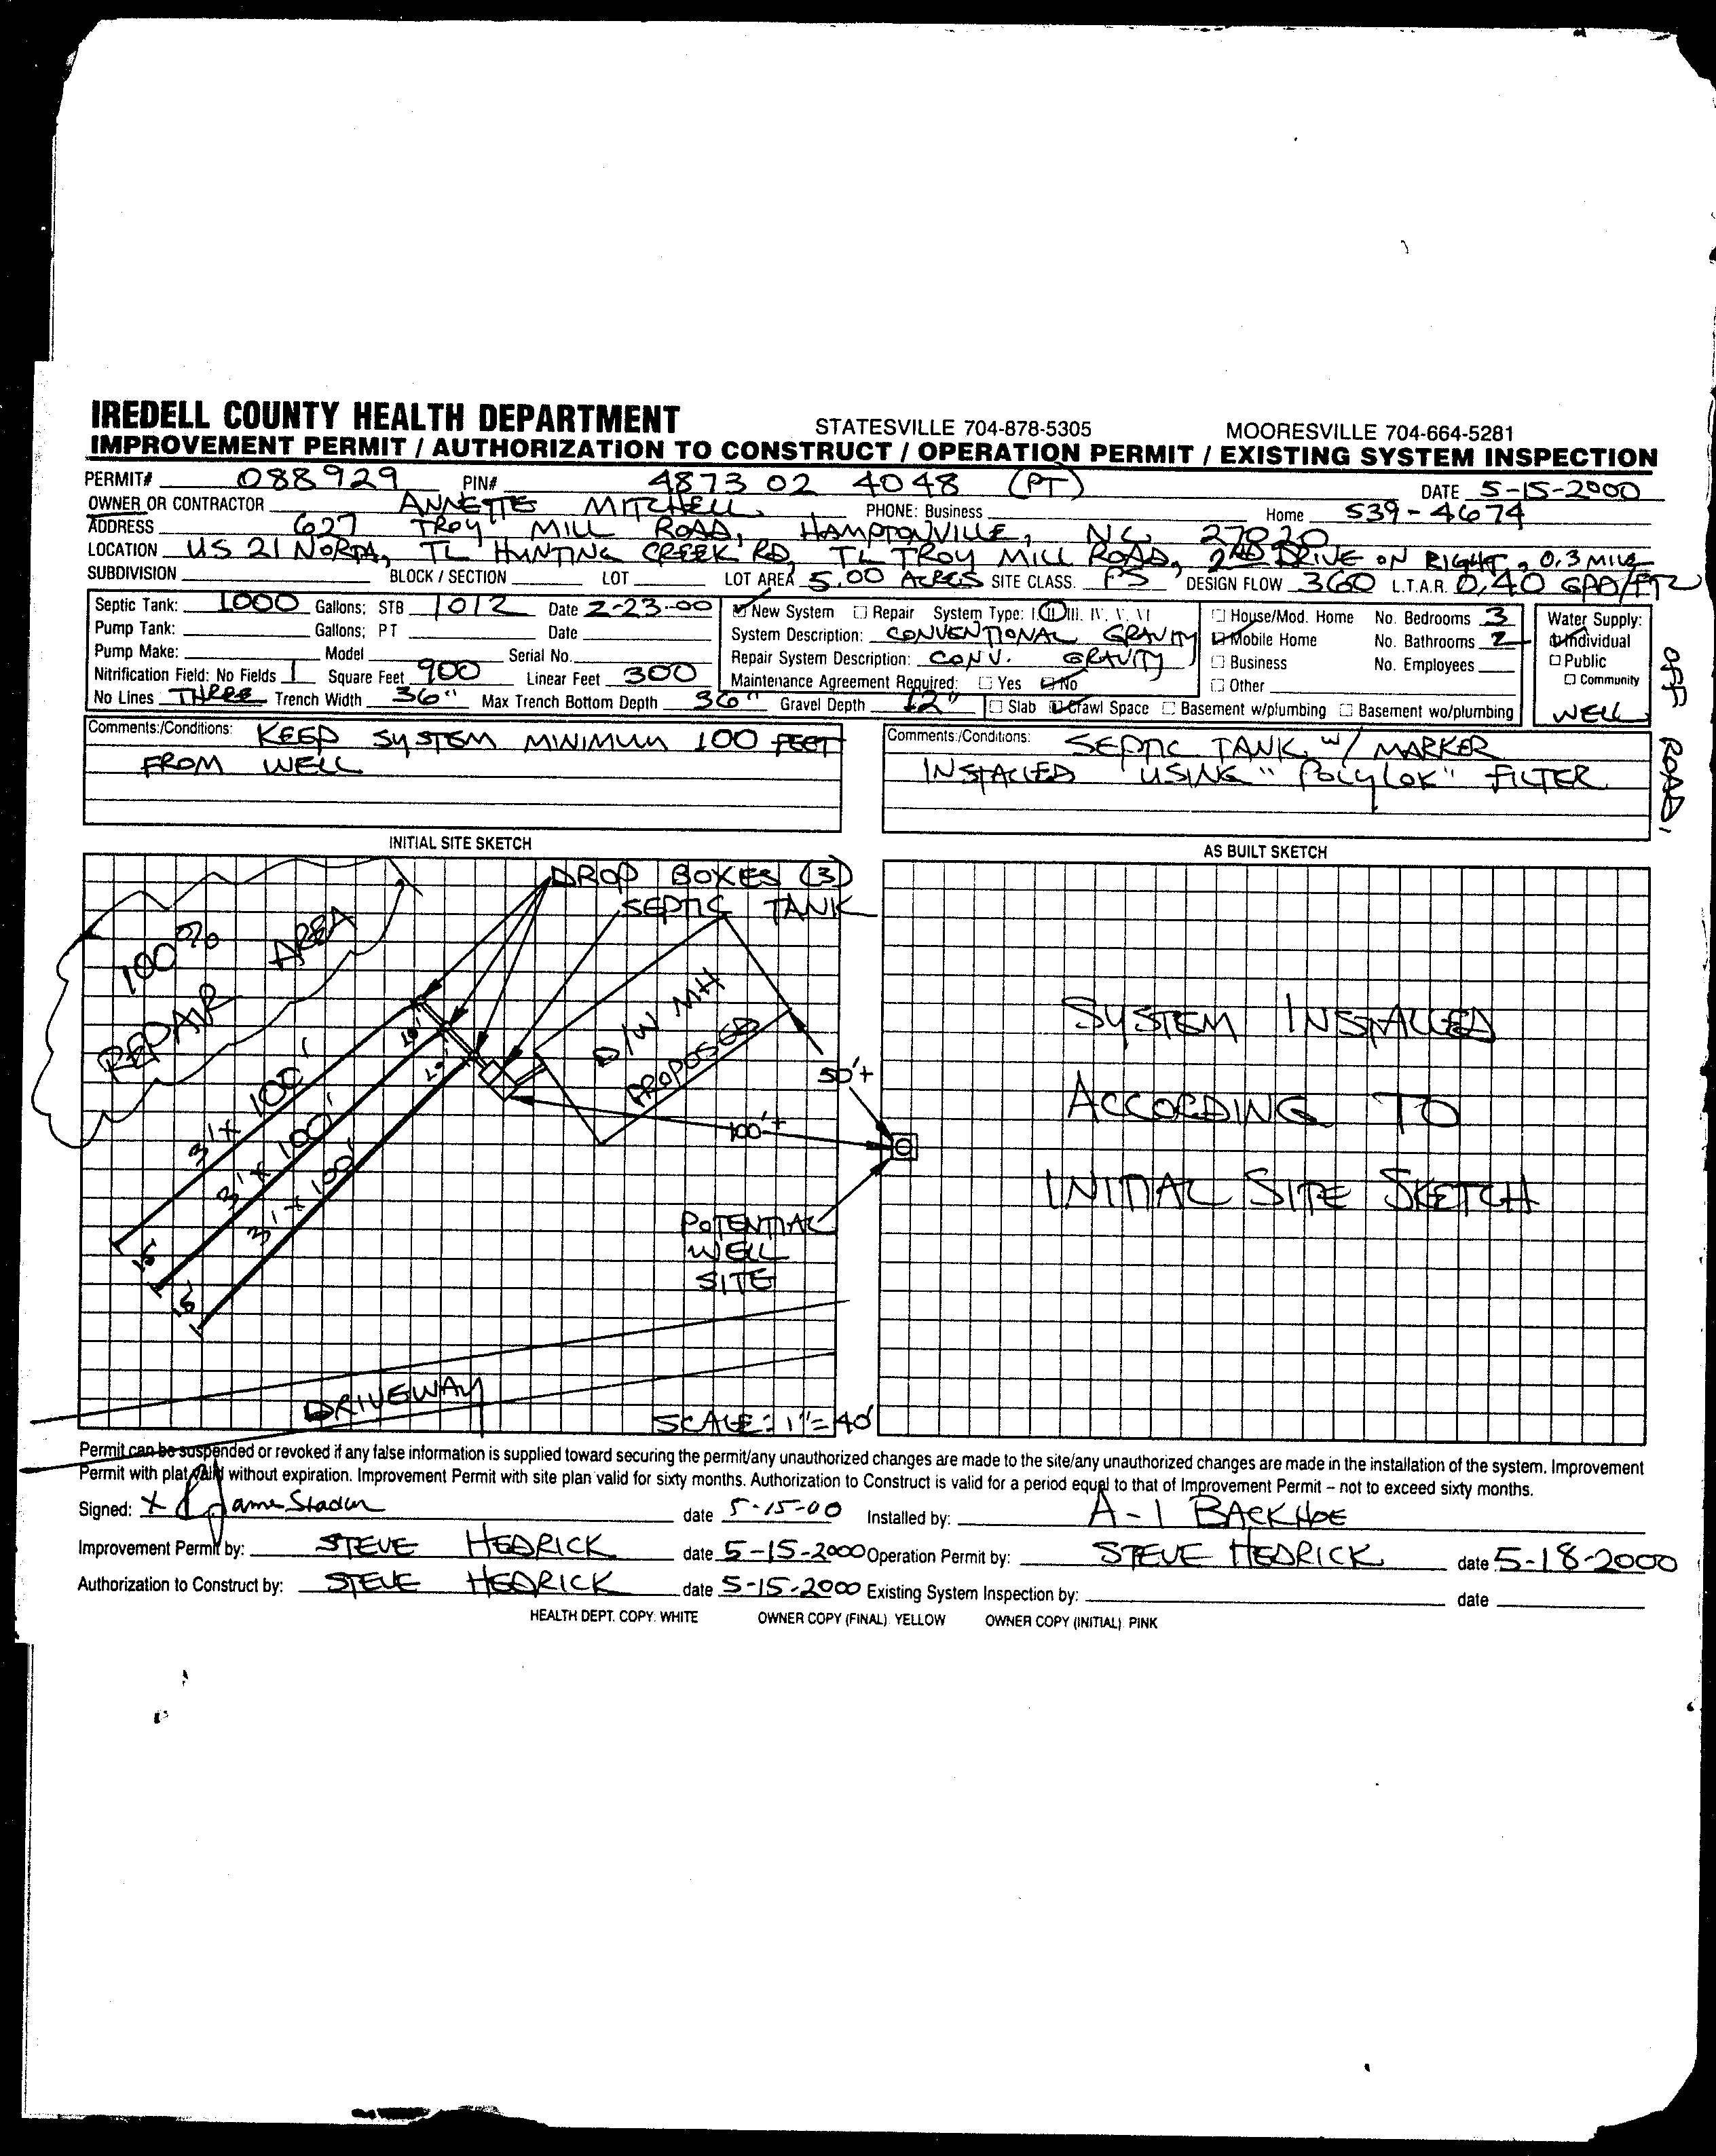 IREDELL COUNTY HEALTH DEPARTMENT STATESVILLE 704-878-5305 MOORESVILLE 704-664-5281
IMPROVEMENT PERMIT / AUTHORIZATION TO CONSTRUCT / OPERATION PERMIT / EXISTING SYSTEM INSPECTION
PERMIT# 088929 PIN# 4873 02 4048 (PT) DATE 5-15-2000
OWNER OR CONTRACTOR ANNETTE MITCHELL PHONE: Business Home 539-4674
ADDRESS 627 TROY MILL ROAD, HAMPTONVILLE, NC 27020
LOCATION US 21 NORTH, TL HUNTING CREEK RD, TL TROY MILL ROAD, 2ND DRIVE ON RIGHT, 0.3 MILE OFF ROAD.
SUBDIVISION BLOCK / SECTION LOT LOT AREA 5.00 ACRES SITE CLASS. PS DESIGN FLOW 360 L.T.A.R. 0.40 GPD/FT2
Septic Tank: 1000 Gallons; STB 1012 Date 2-23-00
Pump Tank: Gallons; PT Date
Pump Make: Model Serial No.
Nitrification Field: No Fields 1 Square Feet 900 Linear Feet 300
No Lines THREE Trench Width 36" Max Trench Bottom Depth 36" Gravel Depth 12"
New System Repair System Type: I. II III. IV. V. VI
System Description: CONVENTIONAL GRAVITY
Repair System Description: CONV. GRAVITY
Maintenance Agreement Required: Yes No
Slab Crawl Space Basement w/plumbing Basement wo/plumbing
House/Mod. Home No. Bedrooms 3
Mobile Home No. Bathrooms 2
Business No. Employees
Other
Water Supply:
Individual
Public
Community
WELL
Comments:/Conditions: KEEP SYSTEM MINIMUM 100 FEET
FROM WELL
Comments:/Conditions: SEPTIC TANK W/ MARKER
INSTALLED USING "POLYLOK" FILTER
INITIAL SITE SKETCH
DROP BOXES (3)
SEPTIC TANK
100% REPAIR AREA
D/W MH
PROPOSED
10'
3' x 100'
3' x 100'
3' x 100'
15'
15'
50'+
100'+
POTENTIAL
WELL
SITE
DRIVEWAY
SCALE: 1"=40'
AS BUILT SKETCH
SYSTEM INSTALLED
ACCORDING TO
INITIAL SITE SKETCH
Permit can be suspended or revoked if any false information is supplied toward securing the permit/any unauthorized changes are made to the site/any unauthorized changes are made in the installation of the system. Improvement
Permit with plat valid without expiration. Improvement Permit with site plan valid for sixty months. Authorization to Construct is valid for a period equal to that of Improvement Permit – not to exceed sixty months.
Signed: X date 5-15-00 Installed by: A-1 BACKHOE
Improvement Permit by: STEVE HEDRICK date 5-15-2000 Operation Permit by: STEVE HEDRICK date 5-18-2000
Authorization to Construct by: STEVE HEDRICK date 5-15-2000 Existing System Inspection by: date
HEALTH DEPT. COPY: WHITE OWNER COPY (FINAL) YELLOW OWNER COPY (INITIAL) PINK